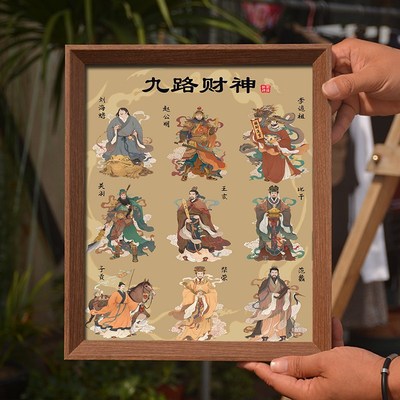 九路财神
刘海蟾
赵公明
李诡祖
关羽
王亥
比干
子贡
柴荣
范蠡